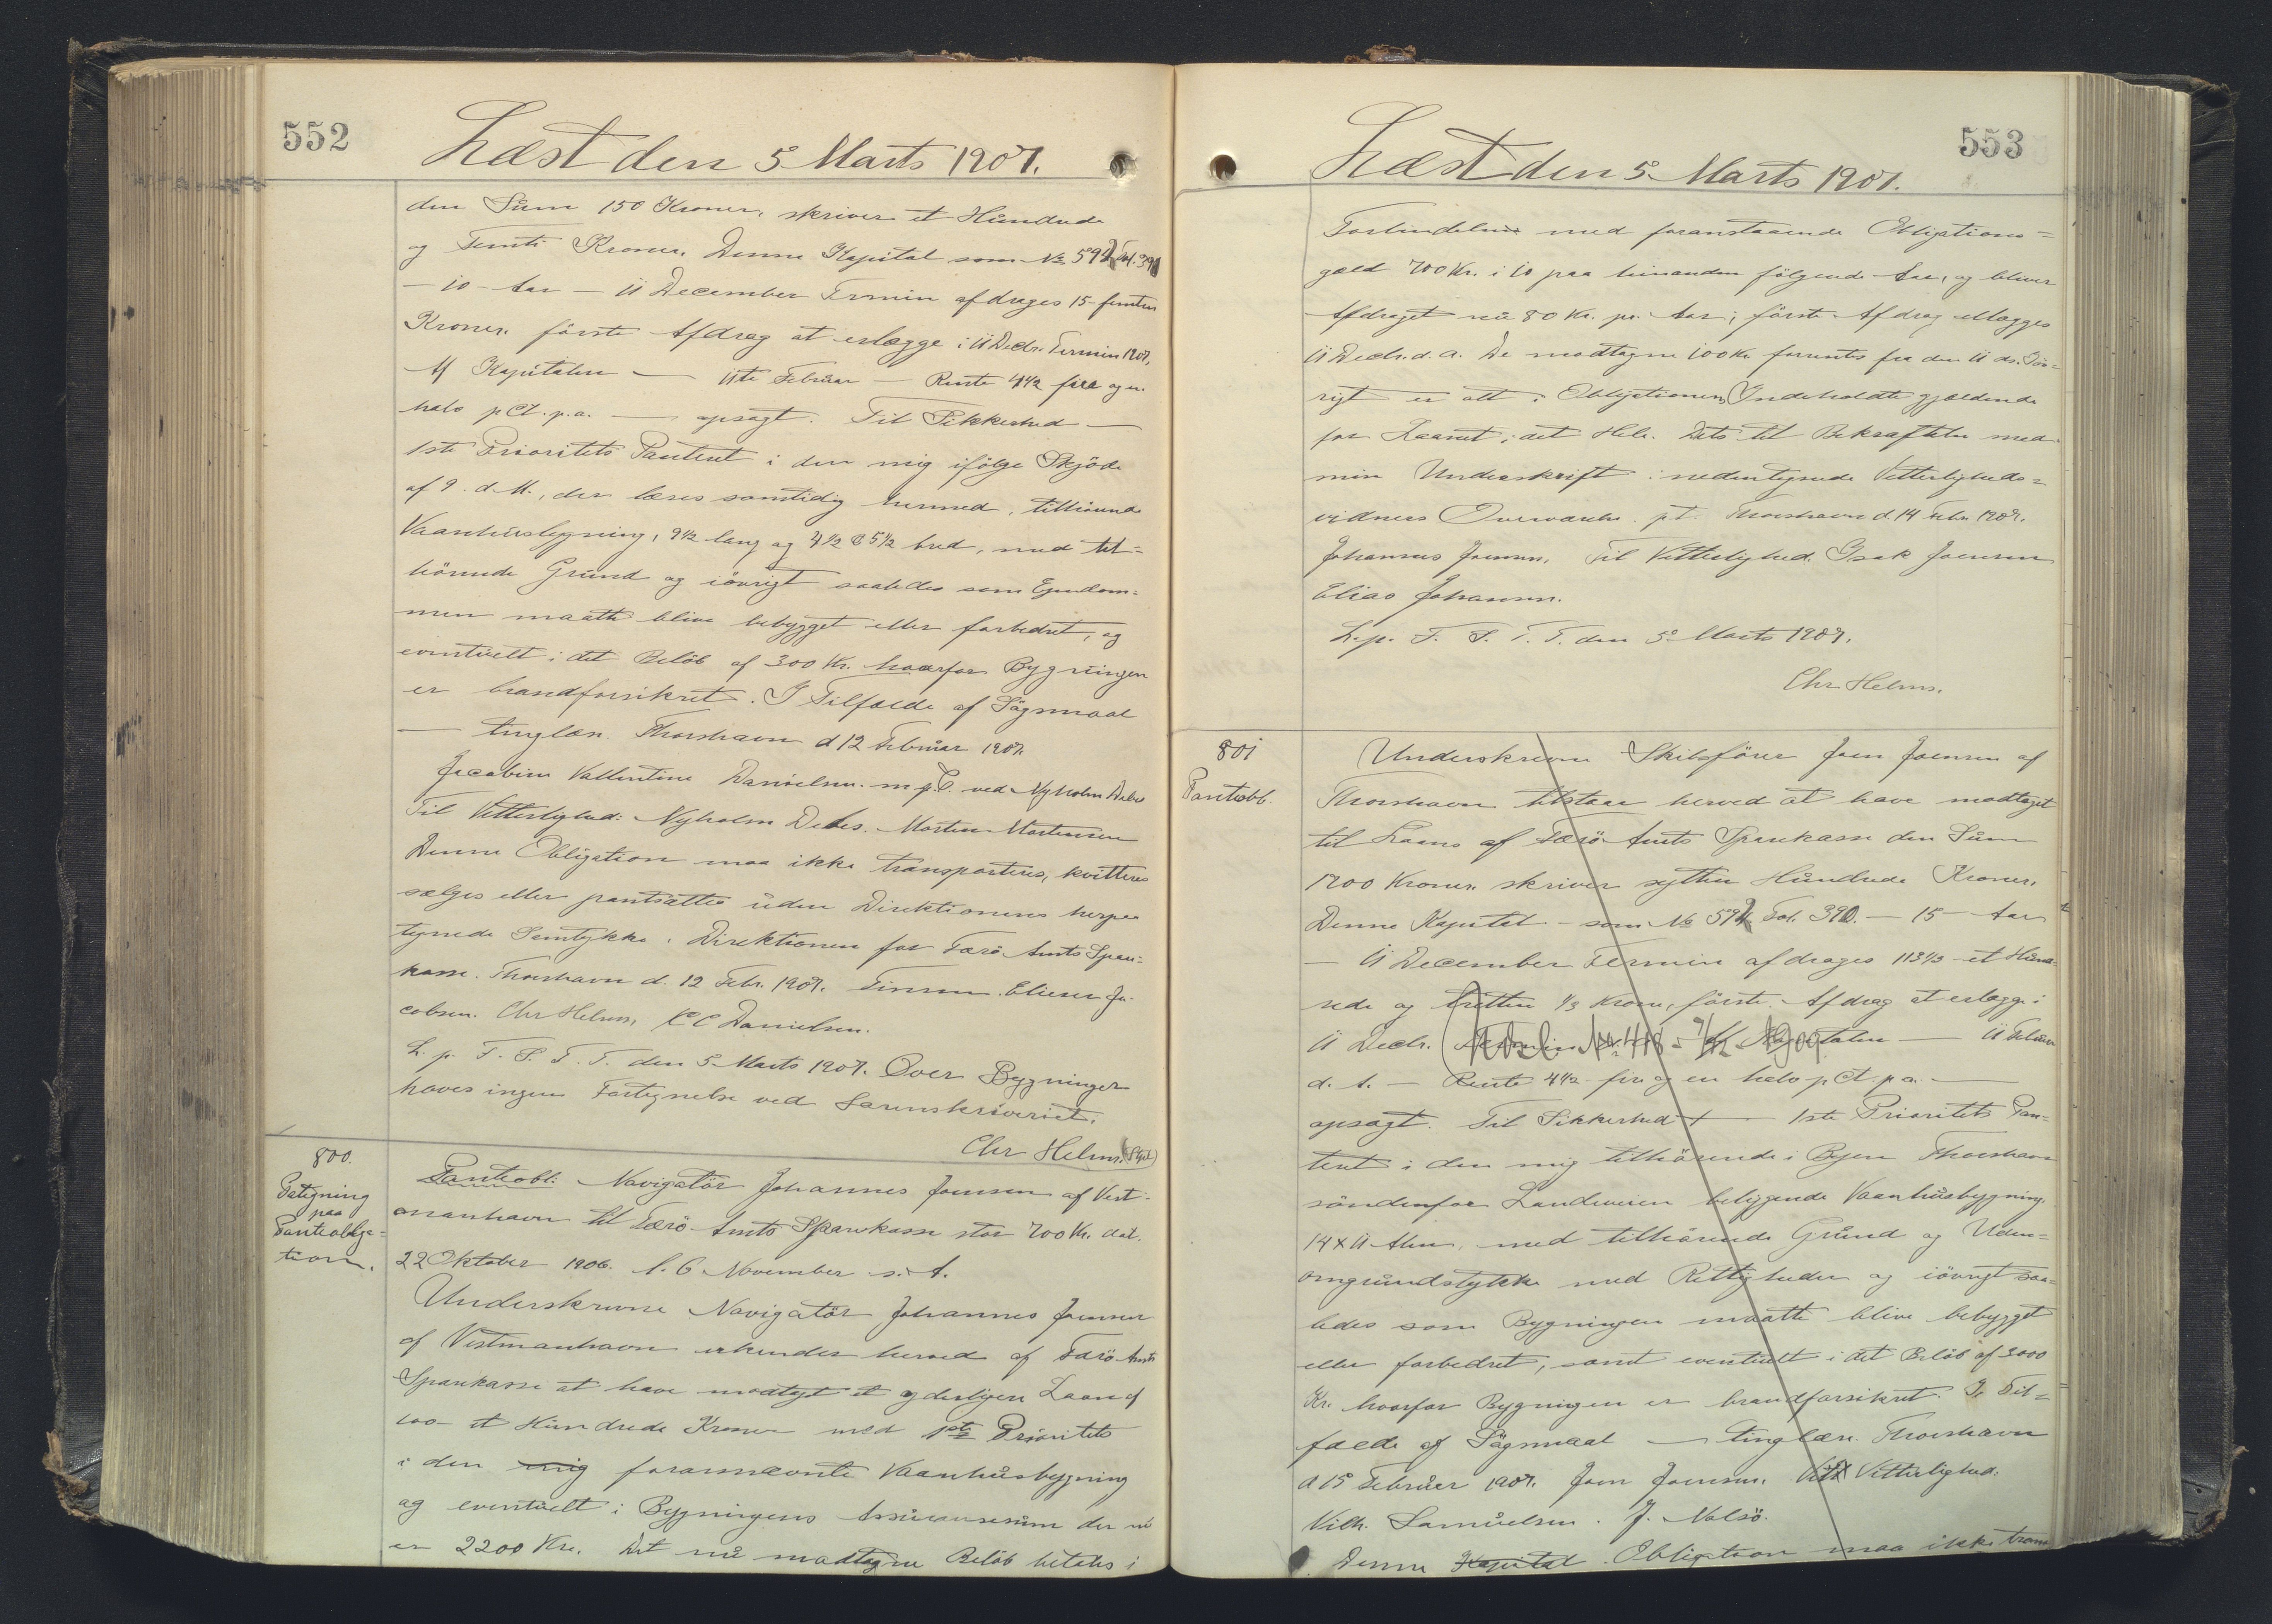 552
Læst den 5 Marts 1907.
den Sum 150 Kroner, skriver et Hundrede
og Femti Kroner. Denne Kapital som No 592 Fol. 390
- 10 - Aar - 11 December Termin afdrages 15 - femten
Kroner. første Afdrag at erlægge i 11 Decbr. Termin 1907,
Af Kapitalen — 11te Februar — Rente 4 1/2 fire og en
halv pCt. p.a. — opsagt. Til Sikkerhed —
1ste Prioritets Panteret i den mig ifølge Skjöde
af 9. d. M., der læses samtidig hermed, tilhörende
Vaanhusbygning, 9 1/2 lang og 4 1/2 & 5 1/2 bred, med til=
hörende Grund og iövrigt saaledes som Ejendom=
men maatte blive bebygget eller forbedret, og
eventuelt i det Belöb af 300 Kr. hvorfor Bygningen
er brandforsikret. I Tilfælde af Sögsmaal
— tinglæs. Thorshavn d 12 Februar 1907.
Jacobine Vallentine Danielsen. m. f. P. ved Nyholm Debes
Til Vitterlighed: Nyholm Debes. Morten Mortensen
Denne Obligation maa ikke transporteres, kvitteres
sælges eller pantsættes uden Direktionens herpaa
tegnede Samtykke. Direktionen for Færö Amts Spare=
kasse. Thorshavn d. 12 Febr. 1907. Finsen. Elieser Ja-
cobsen. Chr Helms, C C Danielsen.
L. p. F. S. T. T. den 5 Marts 1907. Over Bygninger
haves ingen Fortegnelse ved Sorenskriveriet.
Chr Helms.
800.
Pategning
paa
Panteobliga=
tion.
Panteobl: Navigatör Johannes Joensen af Vest-
manhavn til Færö Amts Sparekasse stor 700 Kr. dat.
22 Oktober 1906. l. 6 November s. A.
Underskrevne Navigatör Johannes Joensen
af Vestmanhavn erkender herved af Færö Amts
Sparekasse at have modtaget et yderligere Laan af
100 - et Hundrede Kroner med 1ste Prioritets
i den mig forannævnte Vaanhusbygning
og eventuelt i Bygningens Assurancesum der nu
er 2200 Kr. Det nu modtagne Belöb betales i
553
Læst den 5 Marts 1907.
Forbindelse med foranstaaende Obligations=
gæld 700 Kr. i 10 paa hinanden fölgende Aar, og bliver
Afdraget nu 80 Kr. pr. Aar; förste Afdrag erlægges
11 Decbr. d. A. De modtagne 100 Kr. forrentes fra den 11 ds. Iöv=
rigt er alt i Obligationens Indeholdte gjældende
for Laanet i det Hele. Dets til Bekræftelse med
min Underskrift i nedentegnede Vitterligheds=
vidners Overværelse. p.t. Thorshavn d. 14 Febr. 1907.
Johannes Joensen. Til Vitterlighed: Isak Joensen
Elias Johansen.
L. p. F. S. T. T. den 5 Marts 1907.
Chr Helms.
801
Panteobl.
Underskrevne Skibsförer Joen Joensen af
Thorshavn tilstaar herved at have modtaget
til Laans af Færö Amts Sparekasse den Sum
1700 Kroner. skriver sytten Hundrede Kroner.
Denne Kapital - som No 592 Fol. 390. — 15 — Aar
— 11 December Termin afdrages 113 1/3 - et Hund=
rede og tretten 1/3 Krone, förste Afdrag at erlægge i
11 Decbr. Termin Af Kapitalen — 11 Februar
d. A. — Rente 4 1/2 fire og en halv pCt. p.a. —
opsagt. Til Sikkerhed — 1ste Prioritets Pan=
teret i den mig tilhörende i Byen Thorshavn
söndenfor Landeveien beliggende Vaanhusbygning,
14 x 11 Alen, med tilhörende Grund og Uden=
omgrundstykke med Rettigheder og iövrigt saa=
ledes som Bygningen maatte blive bebygget
eller forbedret, samt eventuelt i det Belöb af 3000
Kr. hvorfor Bygningen er brandforsikret. I Til=
fælde af Sögsmaal — tinglæs. Thorshavn
d 15 Februar 1907. Joen Joensen. Vitt Vitterlighed:
Vilh. Samuelsen. J. Nolsö.
Denne Kapital Obligation maa ikke trans